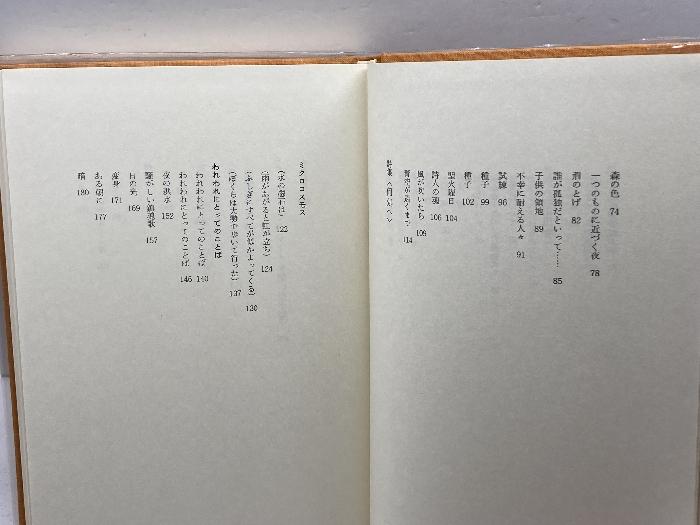 森の色 74
一つのものに近づく夜 78
薊のとげ 82
誰が孤独だといって…… 85
子供の領地 89
不幸に耐える人々 91
試練 96
種子 99
種子 102
聖火曜日 104
詩人の魂 106
風が吹いたら 109
114
ミクロコスモス
122
(雨があがると虹が立ち) 124
(ふしぎにすべてが似かよってくる) 130
(ぼくらは大勢で歩いて行った) 137
われわれにとってのことば
われわれにとってのことば 140
われわれにとってのことば 146
夜の洪水 152
騒がしい鎮魂歌 157
日の光 169
変身 171
ある朝に 177
180